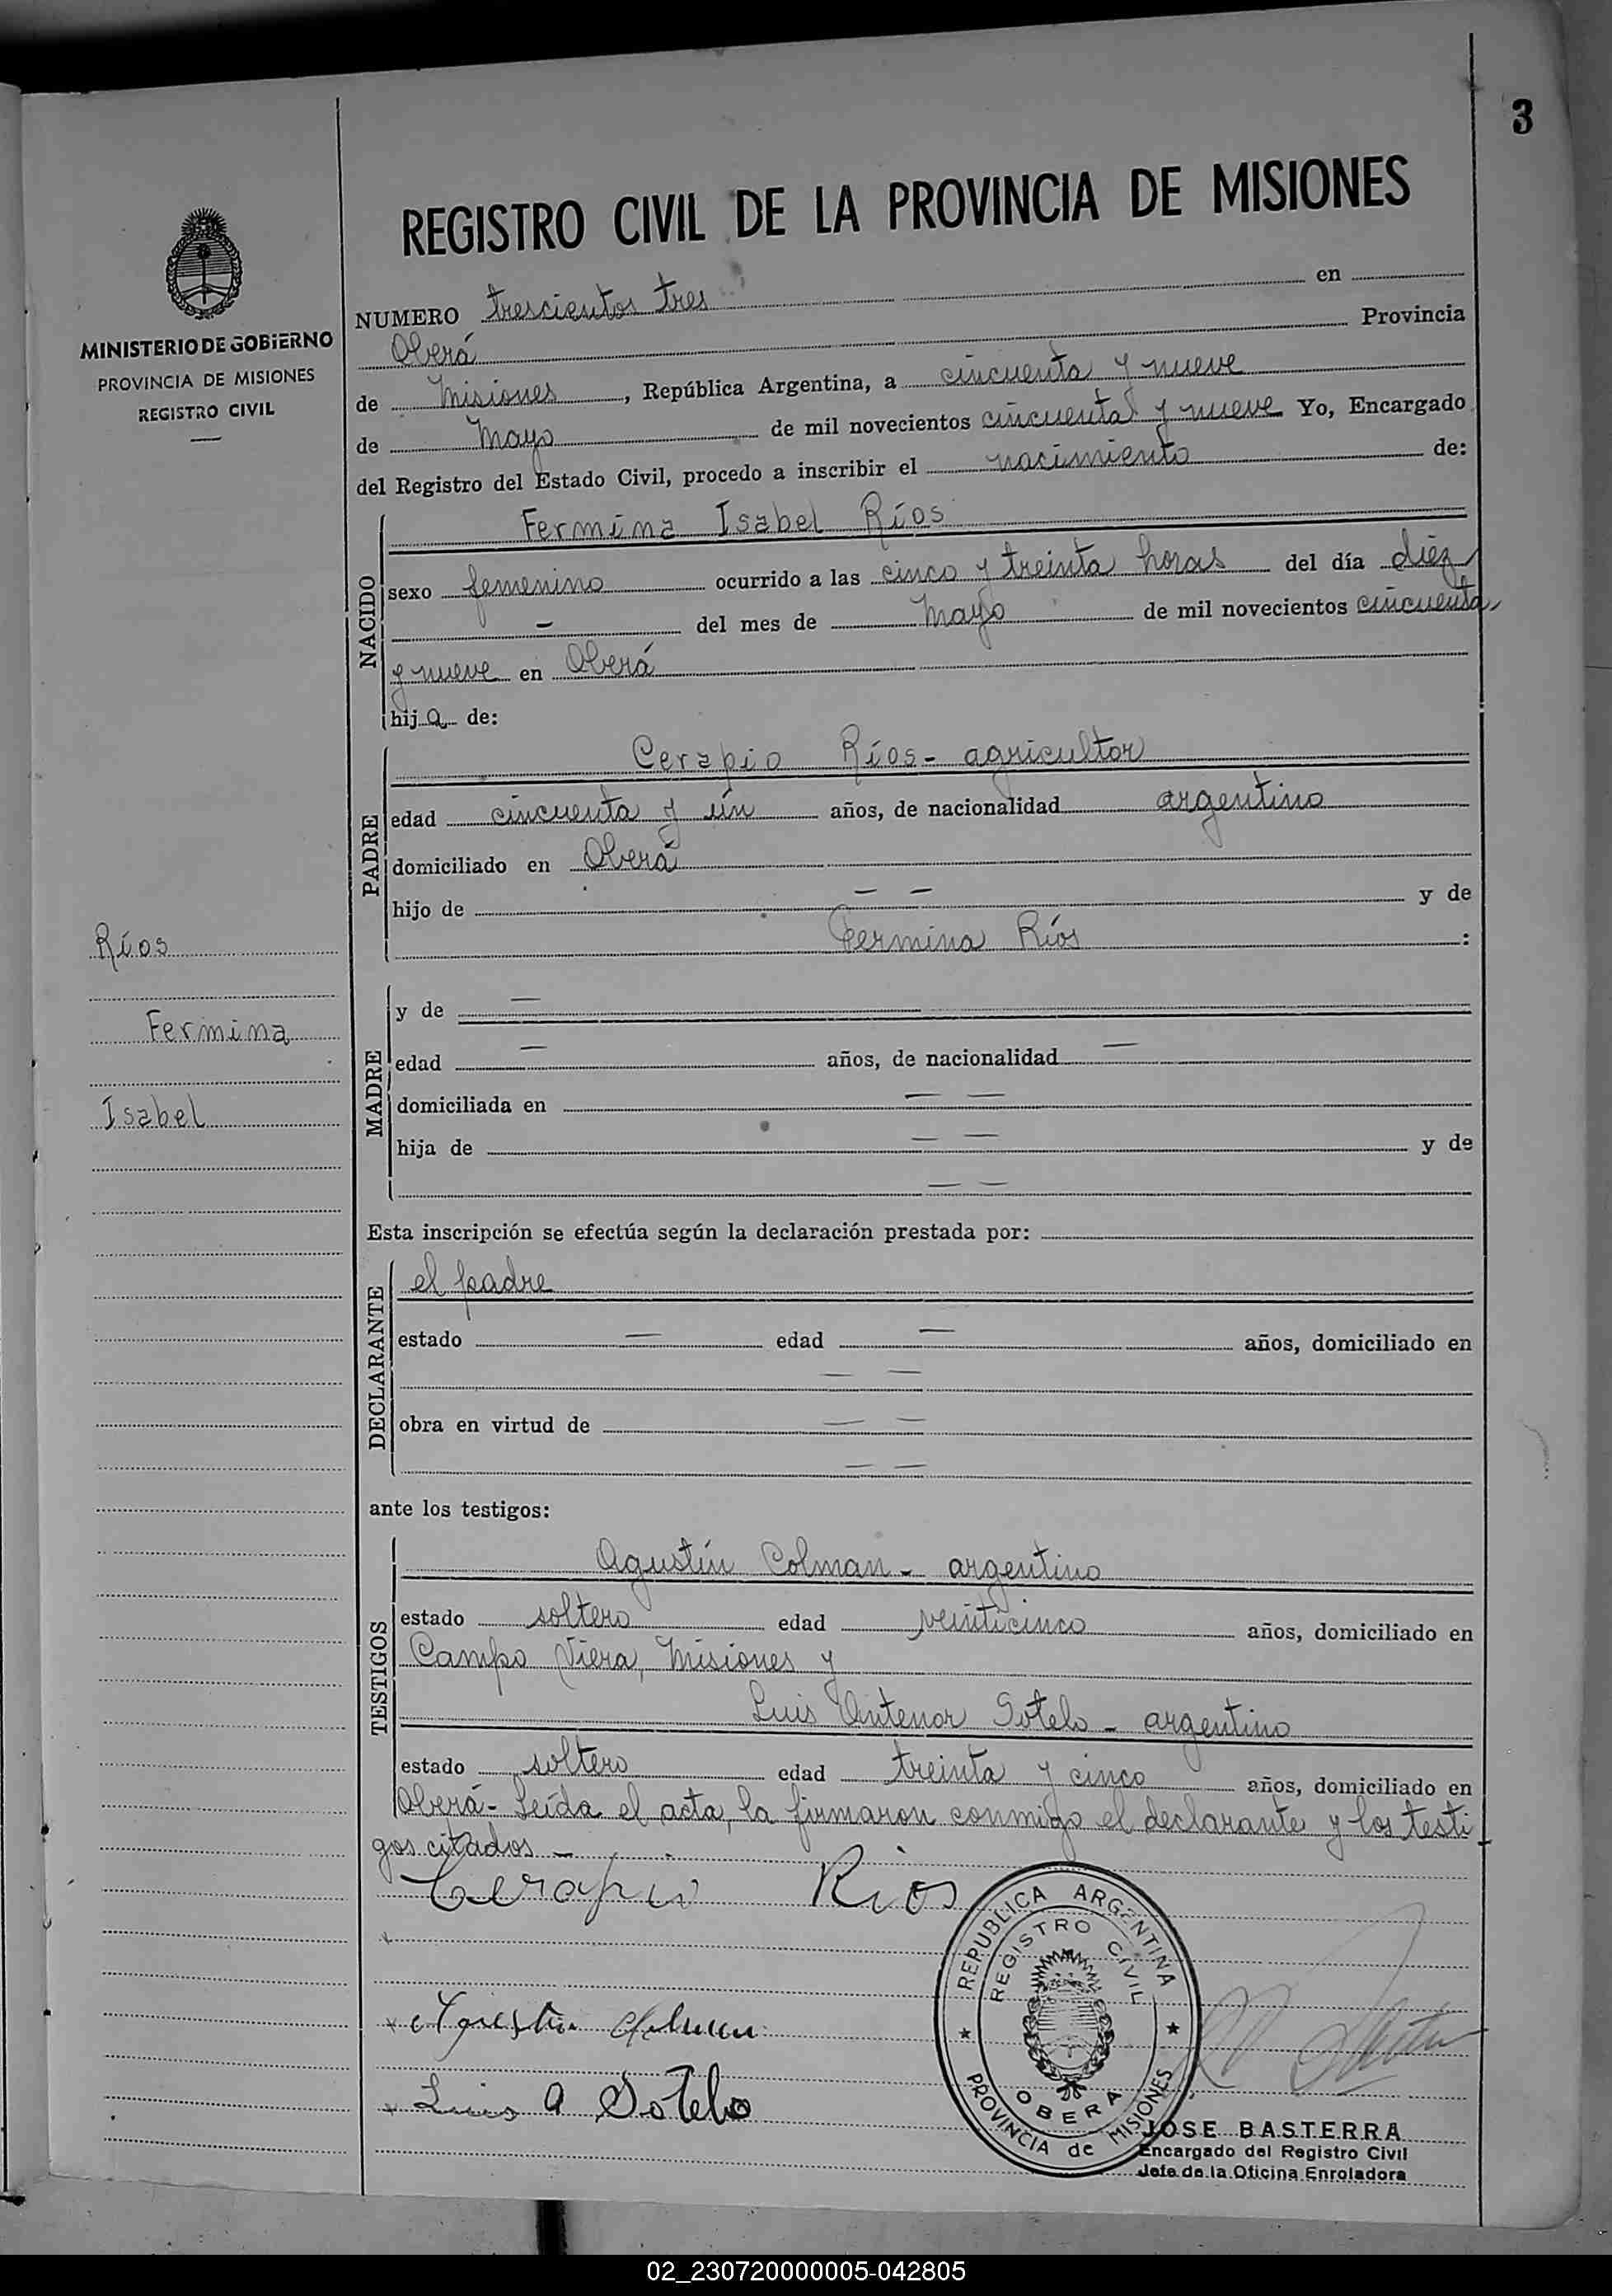 3
REGISTRO CIVIL DE LA PROVINCIA DE MISIONES
MINISTERIO DE GOBIERNO
PROVINCIA DE MISIONES
REGISTRO CIVIL
NUMERO trescientos tres en
Oberá Provincia
de Misiones, República Argentina, a cincuenta y nueve
de Mayo de mil novecientos cincuenta y nueve Yo, Encargado
del Registro del Estado Civil, procedo a inscribir el nacimiento de:
NACIDO
Fermina Isabel Ríos
sexo femenino ocurrido a las cinco y treinta horas del día diez
— del mes de Mayo de mil novecientos cincuenta
y nueve en Oberá
hija de:
PADRE
Cerapio Ríos - agricultor
edad cincuenta y un años, de nacionalidad argentino
domiciliado en Oberá
hijo de — — y de
Fermina Ríos :
Ríos
Fermina
Isabel
MADRE
y de —
edad — años, de nacionalidad —
domiciliada en — —
hija de — — y de
— —
Esta inscripción se efectúa según la declaración prestada por:
DECLARANTE
el padre
estado — edad — años, domiciliado en
— —
obra en virtud de — —
— —
ante los testigos:
TESTIGOS
Agustín Colman - argentino
estado soltero edad veinticinco años, domiciliado en
Campo Viera, Misiones y
Luis Antenor Sotelo - argentino
estado soltero edad treinta y cinco años, domiciliado en
Oberá - Leída el acta, la firmaron conmigo el declarante y los testi
gos citados -
Cerapio Rios
Agustin Colman
Luis A Sotelo
REPUBLICA ARGENTINA
REGISTRO CIVIL
OBERA
PROVINCIA de MISIONES
JOSE BASTERRA
Encargado del Registro Civil
Jefe de la Oficina Enroladora
02_230720000005-042805